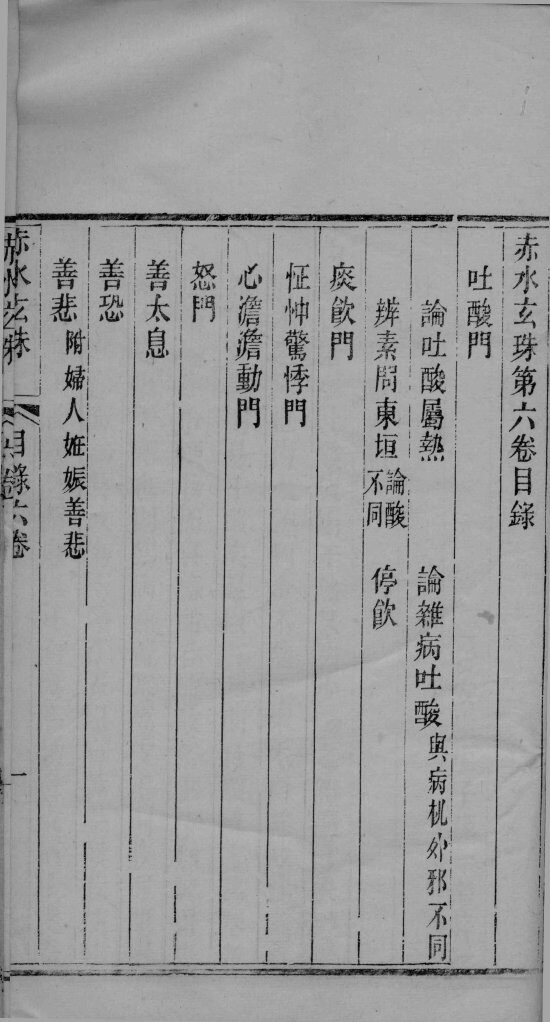 赤水玄珠第六卷目錄
吐酸門
論吐酸屬熱 論雜病吐酸與病机外邪不同
辨素問東垣論酸不同 停飲
痰飲門
怔忡驚悸門
心澹澹動門
怒門
善太息
善恐
善悲附婦人姙娠善悲
赤水玄珠 目錄六卷 一